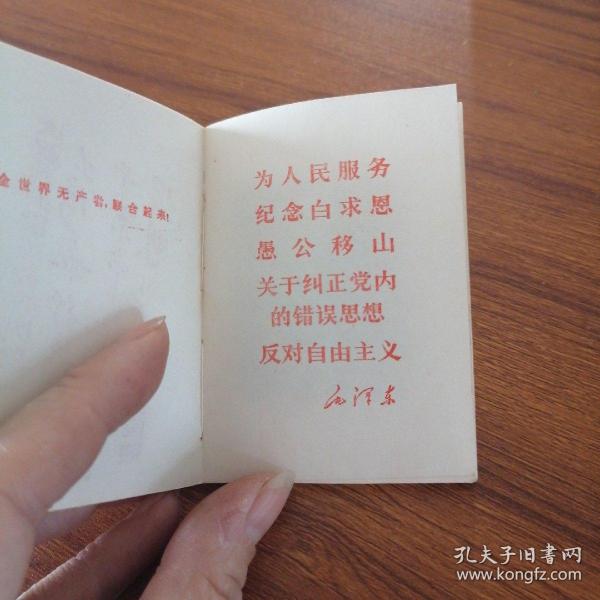 全世界无产者,联合起来!
为人民服务
纪念白求恩
愚公移山
关于纠正党内
的错误思想
反对自由主义
毛泽东
孔夫子旧书网
www.kongfz.com